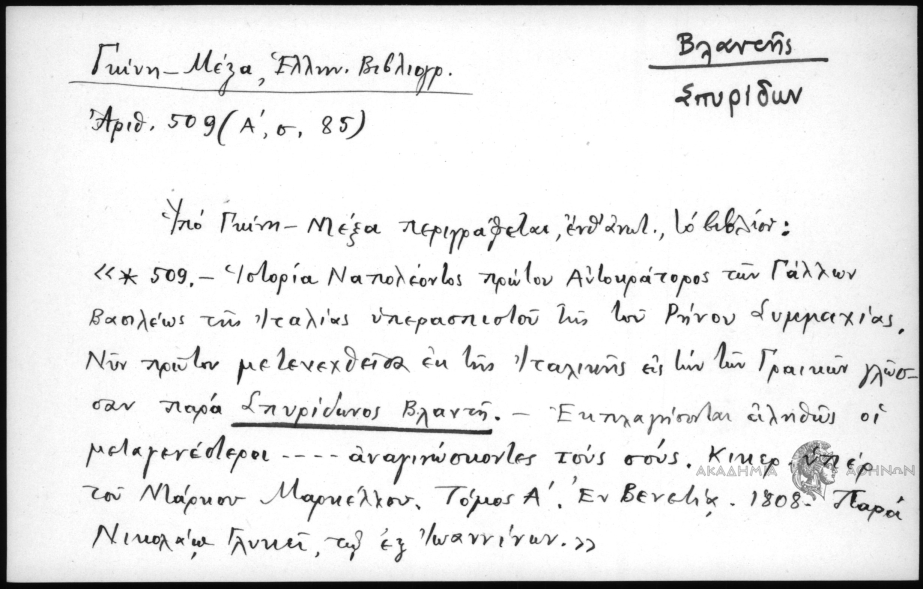 Βλαντῆς
Σπυρίδων
Γκίνη – Μέξα, Ἑλλην. Βιβλιογρ.
Ἀριθ. 509 (Α', σ. 85)
Ὑπό Γκίνη – Μέξα περιγράφεται, ἐνθ' ἀνωτ., τό βιβλίον:
«* 509. – Ἱστορία Ναπολέοντος πρώτου Αὐτοκράτορος τῶν Γάλλων
Βασιλέως τῆς Ἰταλίας ὑπερασπιστοῦ τῆς τοῦ Ρήνου Συμμαχίας.
Νῦν πρῶτον μετενεχθεῖσα ἐκ τῆς Ἰταλικῆς εἰς τήν τῶν Γραικῶν γλῶσ-
σαν παρά Σπυρίδωνος Βλαντῆ. – Ἐκπλαγήσονται ἀληθῶς οἱ
μεταγενέστεροι ---- ἀναγινώσκοντες τούς σούς. Κικερ. ὑπέρ
τοῦ Μάρκου Μαρκέλλου. Τόμος Α'. Ἐν Βενετίᾳ. 1808. Παρά
Νικολάῳ Γλυκεῖ, τῷ ἐξ Ἰωαννίνων.»
ΑΚΑΔΗΜΙΑ ΑΘΗΝΩΝ